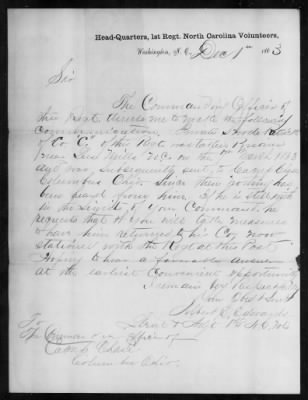 Head-Quarters, 1st Regt. North Carolina Volunteers,
Washington, N. C., Dec 1st 1863
Sir
The Commanding Officer of
this Post desires me to make the following
communication. Private
of Co "C" of this Regt was taken prisoner
near Mills N.C. on the March 1863
and was subsequently sent to Camp Chase
Columbus Ohio. Since then nothing has
been heard from him. If he is still with
in the limits of your Command, he
requests that you will take measures
to have him returned to his Co now
stationed with the Regt at this Post
Hoping to hear a favorable answer
at the earliest convenient opportunity
I remain Respectfully
Your Obt Servt
Edwards
Lieut & Adjt 1st N.C. Vols
To
The Commanding Officer of
Camp Chase
Columbus Ohio.